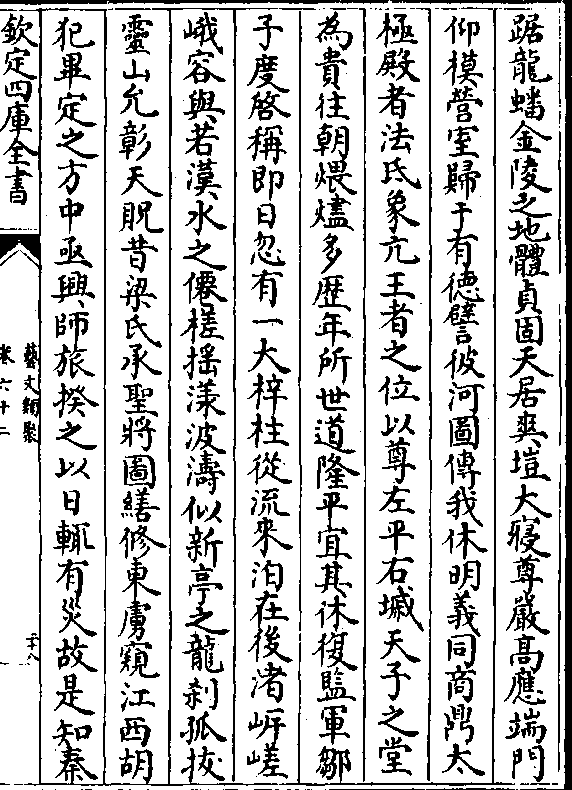 踞龍蟠金陵之地體貞固天居爽塏大寢尊嚴髙應端門
仰模營室歸于有德譬彼河圖傳我休明義同商鼎太
極殿者法氐象亢王者之位以尊左平右墄天子之堂
為貴往朝煨燼多歴年所世道隆平宜其休復監軍鄒
子度啓稱即日忽有一大梓柱從流來泊在後渚岍嵯
峨容與若漢水之僊槎揺漾波濤似新亭之龍刹孤拔
靈山允彰天貺昔梁氏承聖將圖繕修東虜窺江西胡
犯畢定之方中亟興師旅揆之以日輙有災故是知秦
欽定四庫全書
藝文類聚
卷六十二
二十八